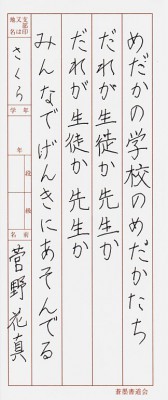 めだかの学校のめだかたち
だれが生徒か先生か
だれが生徒か先生か
みんなでげんきにあそんでる
支部印又は地名
さくら
学年
年
段級
名前
菅野花真
書墨書道会